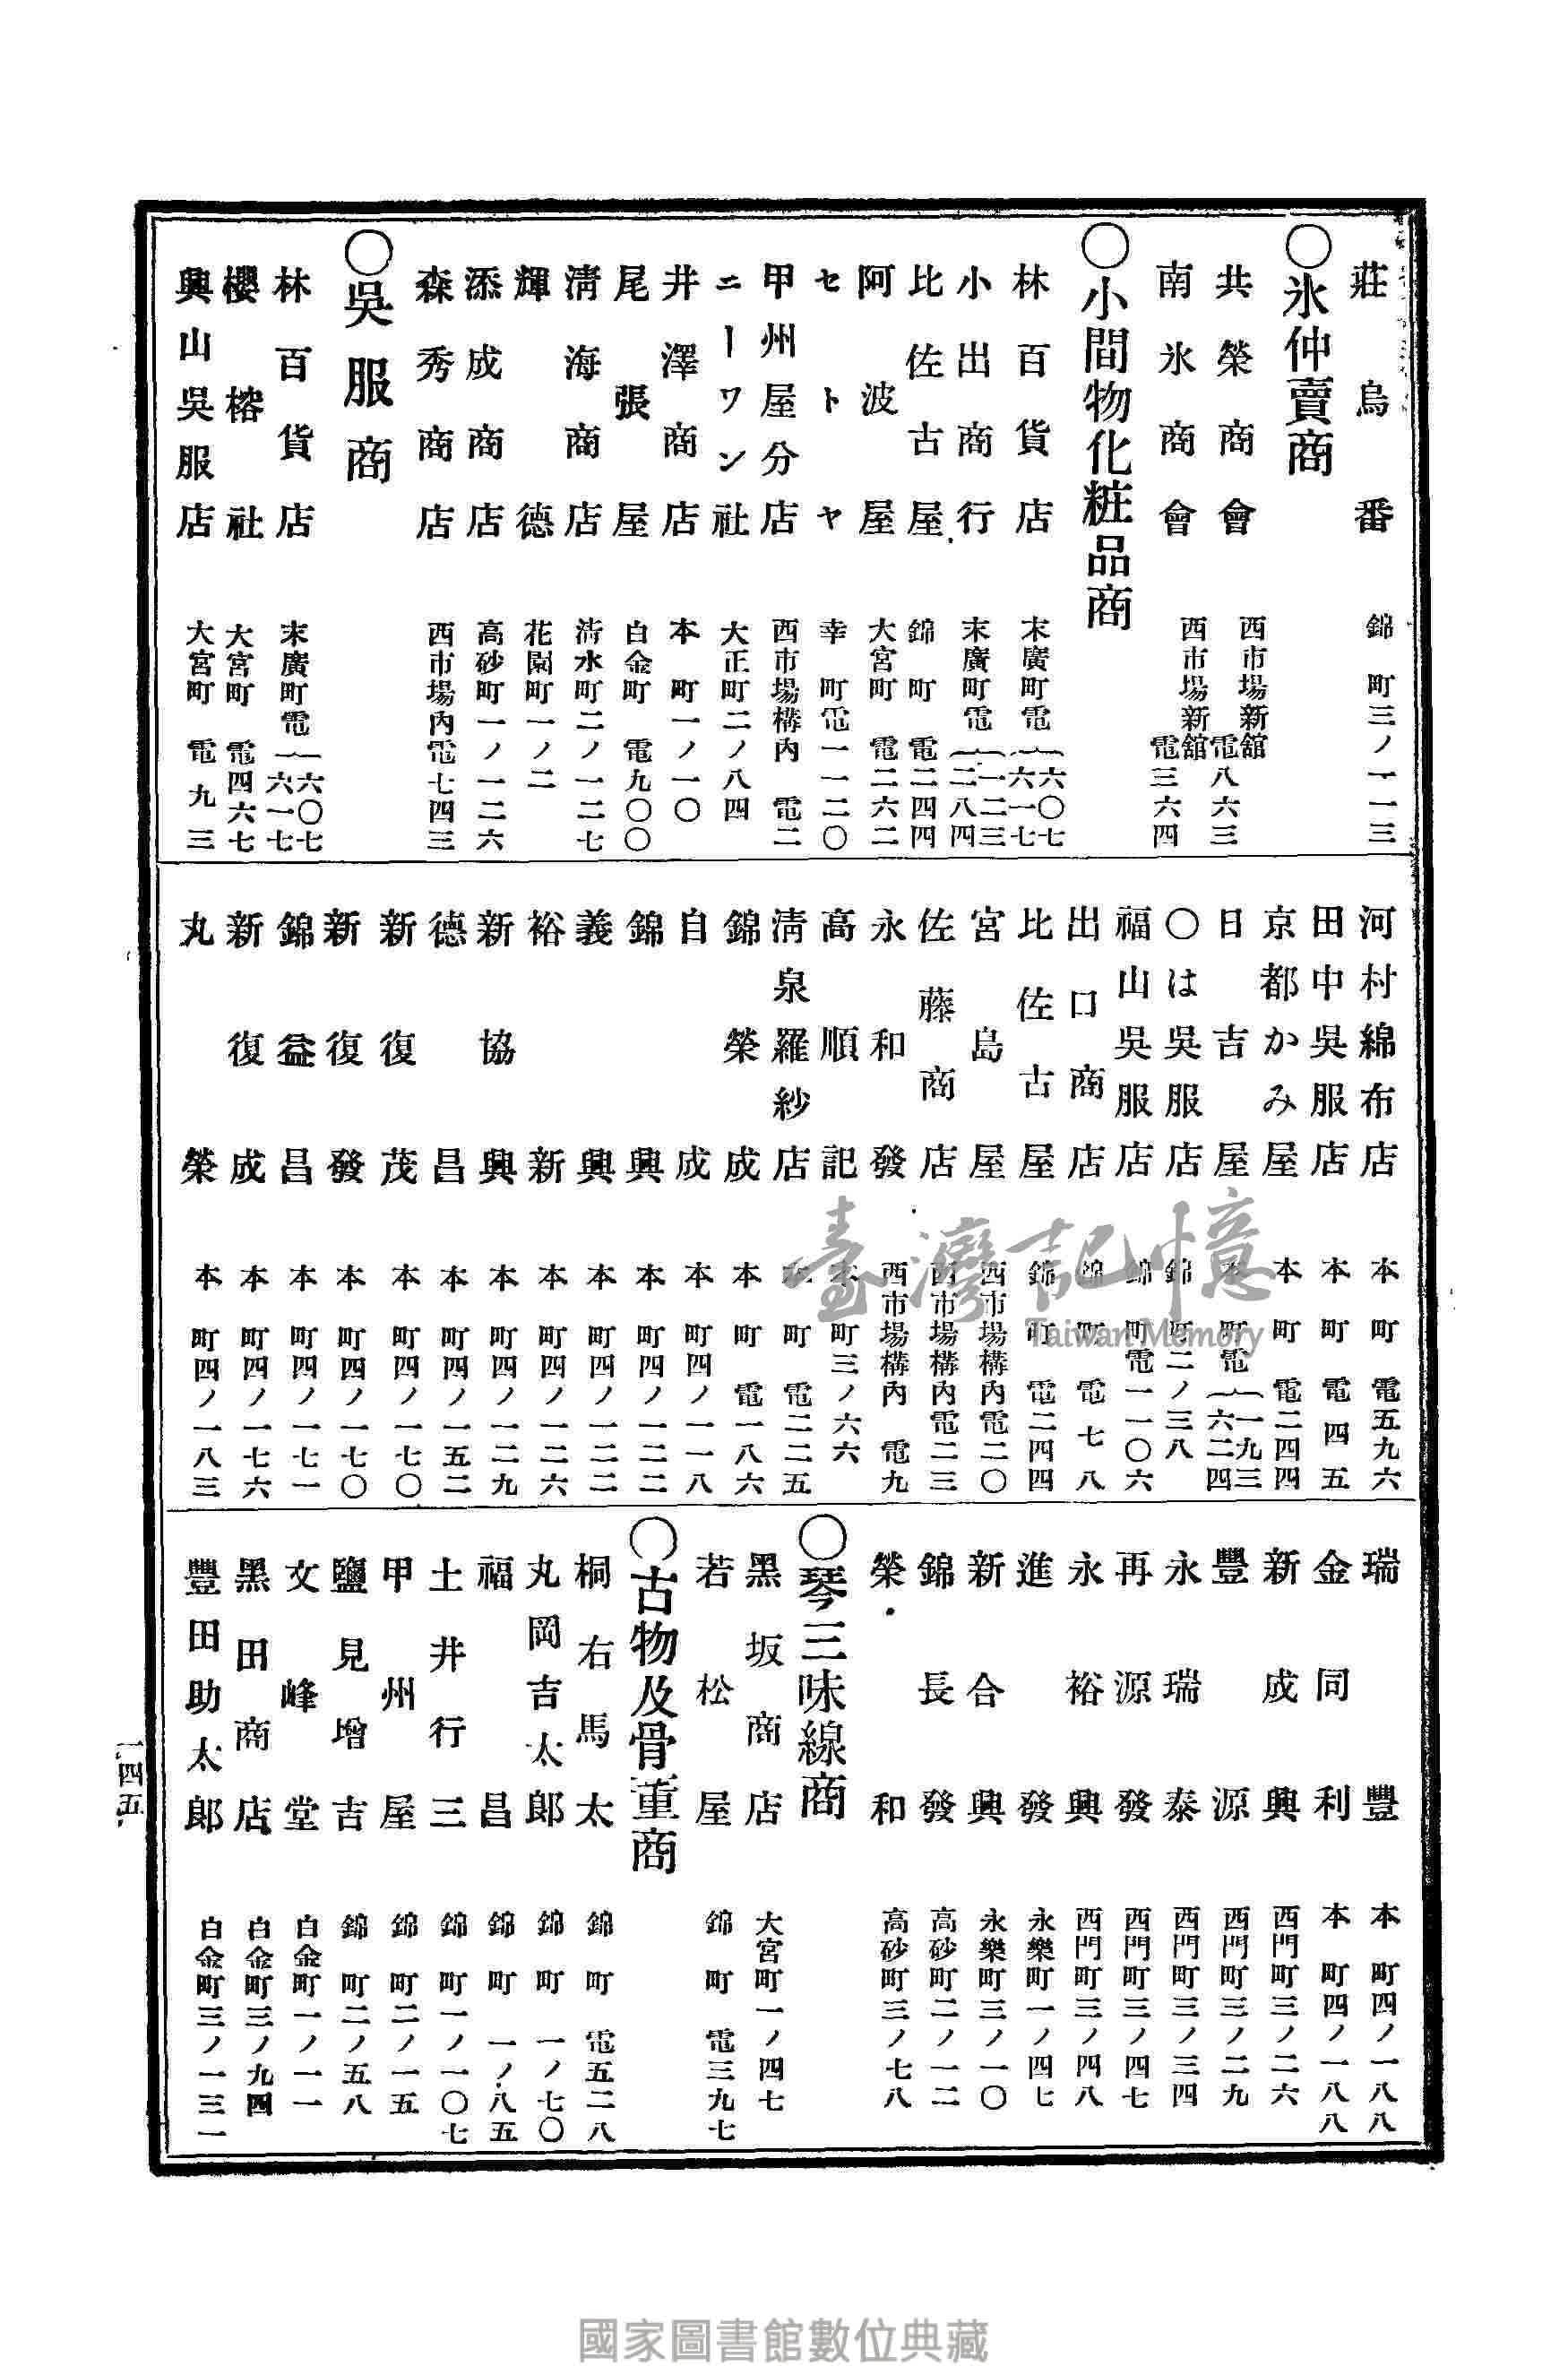 莊烏番 錦町三ノ一一三
〇氷仲賣商
共榮商會 西市場新舘電八六三
南氷商會 西市場新舘電三六四
〇小間物化粧品商
林百貨店 末廣町電(六〇七 六一七
小出商行 末廣町電(一二三 二八四
比佐古屋 錦町電二四四
阿波屋 大宮町電二六二
セトヤ 幸町電一一二〇
甲州屋分店 西市場構內電二
ニーワン社 大正町二ノ八四
井澤商店 本町一ノ一〇
尾張屋 白金町電九〇〇
淸海商店 淸水町二ノ一二七
輝德 花園町一ノ二
添成商店 高砂町一ノ一二六
森秀商店 西市場內電七四三
〇吳服商
林百貨店 末廣町電(一六〇七 六一七
櫻榕社 大宮町電四六七
興山吳服店 大宮町電九三
河村綿布店 本町電五九六
田中吳服店 本町電四五
京都かみ屋 本町電二四四
日吉屋 本町電(一九三 六二四
〇は吳服店 錦町二ノ三八
福山吳服店 錦町電一一〇六
出口商店 錦町電七八
比佐古屋 錦町電二四四
宮島屋 西市場構內電二〇
佐藤商店 西市場構內電二三
永和發 西市場構內電九
高順記 本町三ノ六六
淸泉羅紗店 本町電二二五
錦榮成 本町電一八六
自成 本町四ノ一一八
錦興 本町四ノ一二二
義興 本町四ノ一二二
裕新 本町四ノ一二六
新協興 本町四ノ一二九
德昌 本町四ノ一五二
新復茂 本町四ノ一七〇
新復發 本町四ノ一七〇
錦益昌 本町四ノ一七一
新復成 本町四ノ一七六
丸榮 本町四ノ一八三
瑞豐 本町四ノ一八八
金同利 本町四ノ一八八
新成興 西門町三ノ二六
豐源 西門町三ノ二九
永瑞泰 西門町三ノ三四
再源發 西門町三ノ四七
永裕興 西門町三ノ四八
進發 永樂町一ノ四七
新合興 永樂町三ノ一〇
錦長發 高砂町二ノ一二
榮和 高砂町三ノ七八
〇琴三味線商
黑坂商店 大宮町一ノ四七
若松屋 錦町電三九七
〇古物及骨董商
桐右馬太 錦町電五二八
丸岡吉太郎 錦町一ノ七〇
福昌 錦町一ノ八五
土井行三 錦町一ノ一〇七
甲州屋 錦町二ノ一五
鹽見增吉 錦町二ノ五八
文峰堂 白金町一ノ一一
黑田商店 白金町三ノ九四
豐田助太郎 白金町三ノ一三一
一四五
臺灣記憶
Taiwan Memory
國家圖書館數位典藏